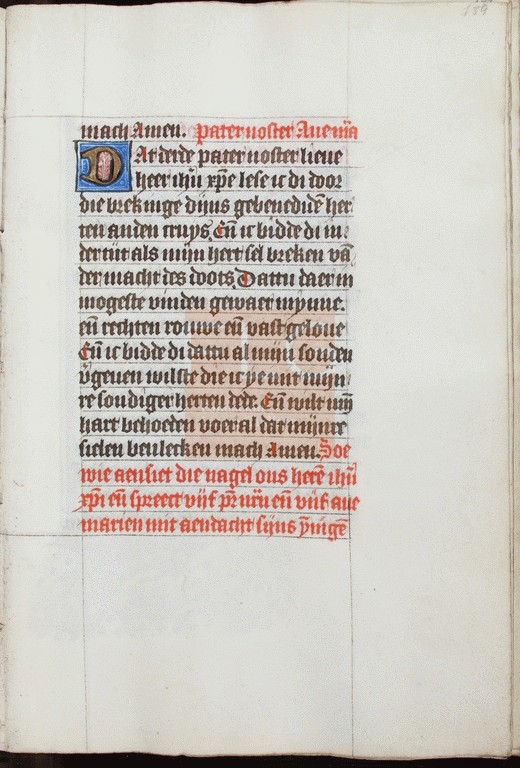 189
mach Amen. Pater noster Aue ma̅a
DAt derde pater noster lieue
heer ihu̅ xp̅e lese ic di voor
die brekinge dijns gebenedide̅ her
ten anden cruys. En̅ ic bidde di in
der tijt als mijn hert sel breken va̅
der macht des doots. Dattu daer in
mogeste vinden gewaer mynne.
en̅ rechten rouwe en̅ vast geloue
En̅ ic bidde di dattu al mijn sonden
v̅geuen wilste die ic ye mit mijn
re sondiger herten dede. En̅ wilt mij̅
hart behoeden voer al dat mijnre
sielen beulecken mach Amen. Soe
wie aensiet die nagel ons here̅ ihu̅
xp̅i en̅ spreect vijf pr̅ nr̅n en̅ vijf aue
marien mit aendacht sijns y̅nige̅